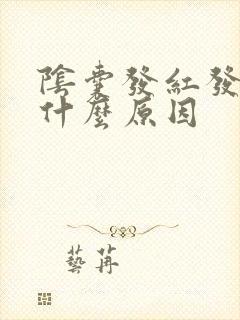 陰囊發紅發
什麼原因
藝苒